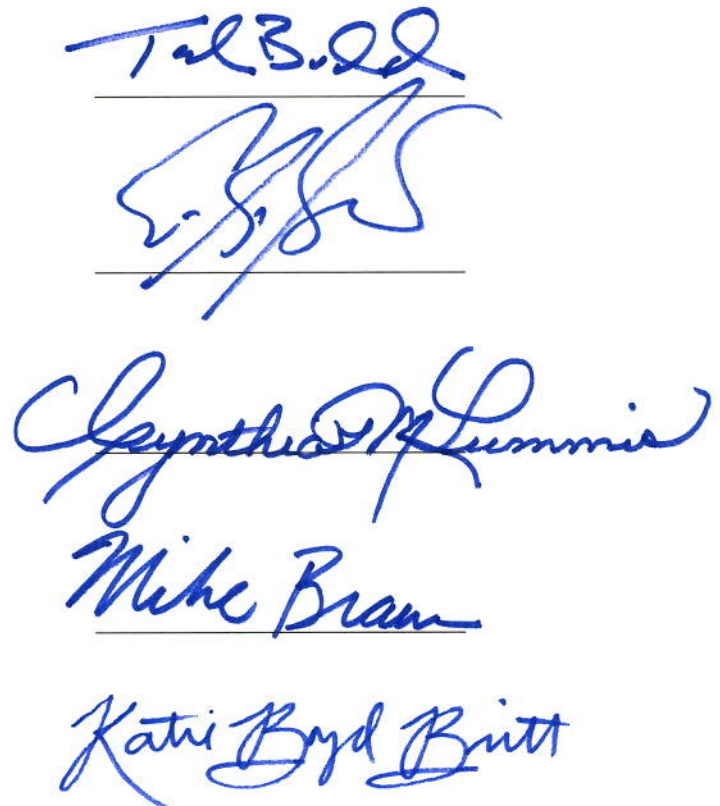 Ted Budd
Cynthia M Lummis
Mike Braun
Katie Boyd Britt